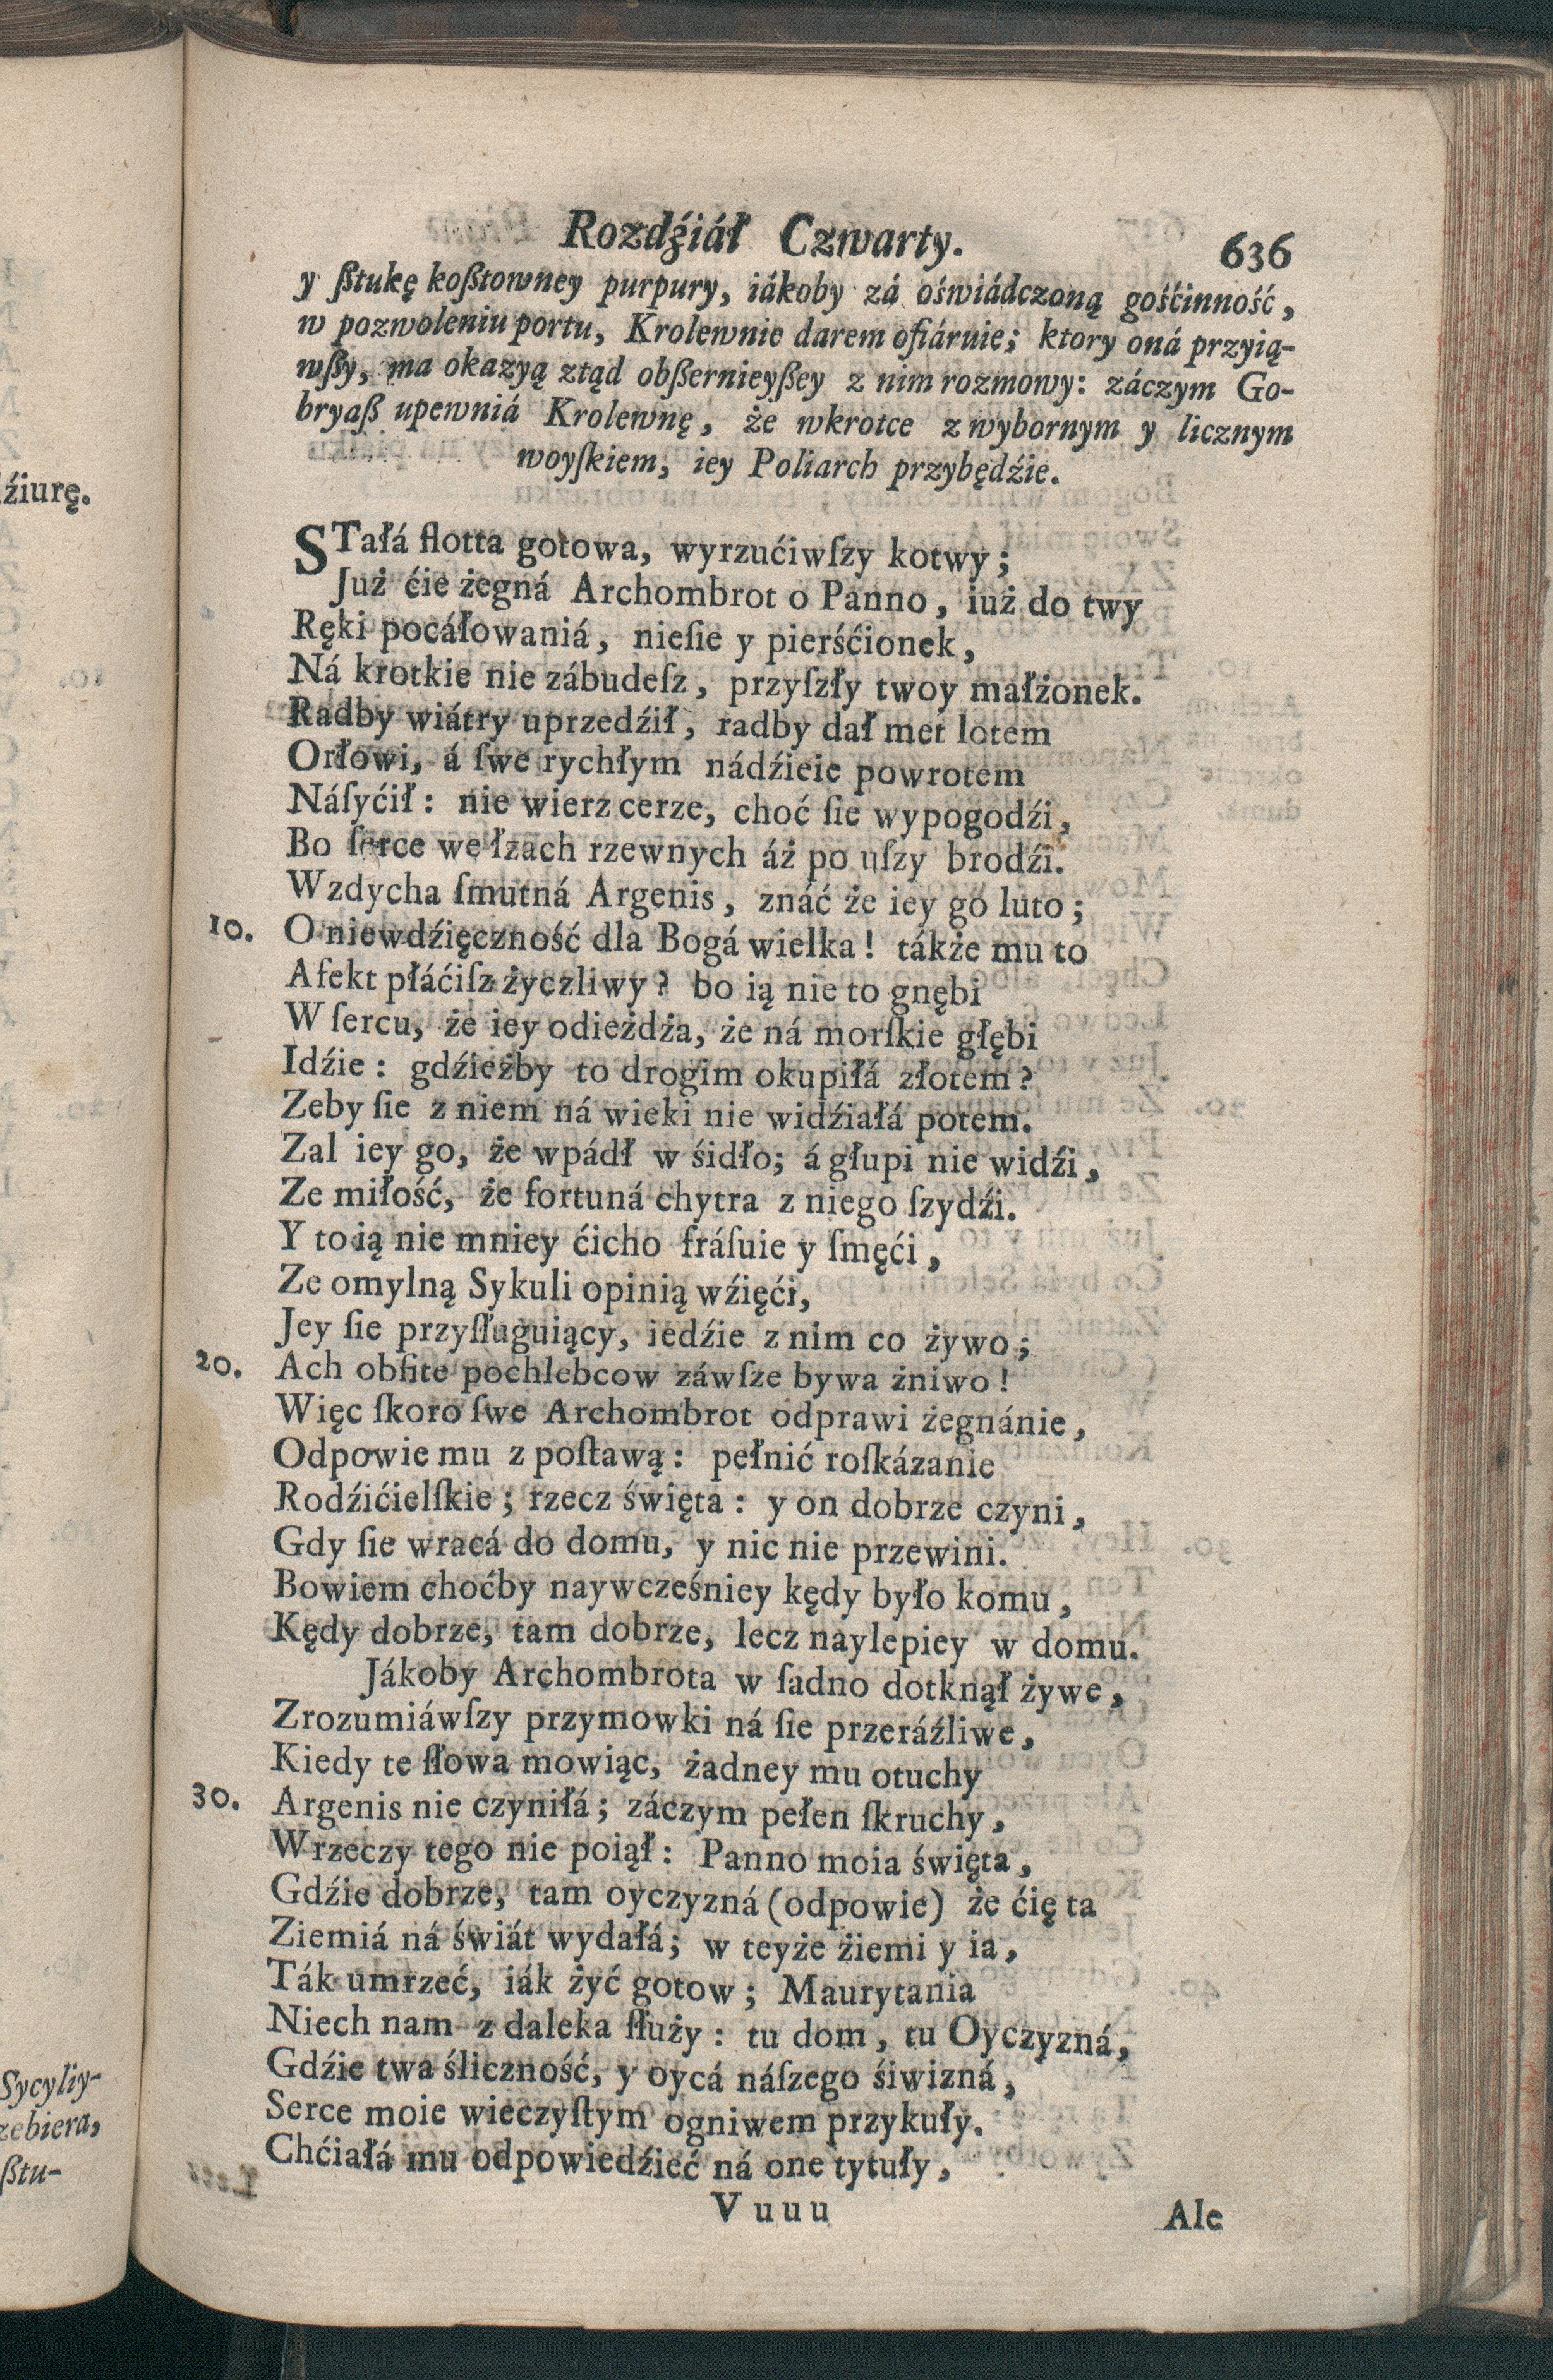 Rozdźiáł Czwarty. 636
y ßtukę koßtowney purpury, iákoby zá oświádczoną gośćinność,
w pozwoleniu portu, Krolewnie darem ofiáruie; ktory oná przyią-
wßy, ma okazyą ztąd obßernieyßey z nim rozmowy: záczym Go-
bryaß upewniá Krolewnę, że wkrotce z wybornym y licznym
woyſkiem, iey Poliarch przybędźie.
STałá flotta gotowa, wyrzućiwſzy kotwy;
Już ćie żegná Archombrot o Panno, iuż do twy
Ręki pocáłowaniá, nieſie y pierśćionek,
Ná krotkie nie zábudeſz, przyſzły twoy małżonek.
Radby wiátry uprzedźił, radby dał met lotem
Orłowi, á ſwe rychłym nádźieie powrotem
Náſyćił: nie wierz cerze, choć ſie wypogodźi,
Bo ſerce we łzach rzewnych áż po uſzy brodźi.
Wzdycha ſmutná Argenis, znáć że iey go luto;
10. O niewdźięczność dla Bogá wielka! tákże mu to
Afekt płáćiſz życzliwy? bo ią nie to gnębi
W ſercu, że iey odieżdża, że ná morſkie głębi
Idźie: gdźieżby to drogim okupiłá złotem?
Zeby ſie z niem ná wieki nie widźiałá potem.
Zal iey go, że wpádł w śidło; á głupi nie widźi,
Ze miłość, że fortuná chytra z niego ſzydźi.
Y to ią nie mniey ćicho fráſuie y ſmęći,
Ze omylną Sykuli opinią wźięći,
Jey ſie przyſługuiący, iedźie z nim co żywo;
20. Ach obfite pochlebcow záwſze bywa żniwo!
Więc ſkoro ſwe Archombrot odprawi żegnánie,
Odpowie mu z poſtawą: pełnić roſkázanie
Rodźićielſkie; rzecz święta: y on dobrze czyni,
Gdy ſie wracá do domu, y nic nie przewini.
Bowiem choćby naywcześniey kędy było komu,
Kędy dobrze, tam dobrze, lecz naylepiey w domu.
Jákoby Archombrota w ſadno dotknął żywe,
Zrozumiáwſzy przymowki ná ſie przeráźliwe,
Kiedy te ſłowa mowiąc, żadney mu otuchy
30. Argenis nie czyniłá; záczym pełen ſkruchy,
Wrzeczy tego nie poiął: Panno moia święta,
Gdźie dobrze, tam oyczyzná (odpowie) że ćię ta
Ziemiá ná świát wydałá; w teyże żiemi y ia,
Ták umrzeć, iák żyć gotow; Maurytania
Niech nam z daleka ſłuży: tu dom, tu Oyczyzná,
Gdźie twa śliczność, y oycá náſzego śiwizná,
Serce moie wieczyſtym ogniwem przykuły.
Chćiałá mu odpowiedźieć ná one tytuły,
Vuuu Ale
źiurę.
Sycyliy-
zebiera,
ßtu-